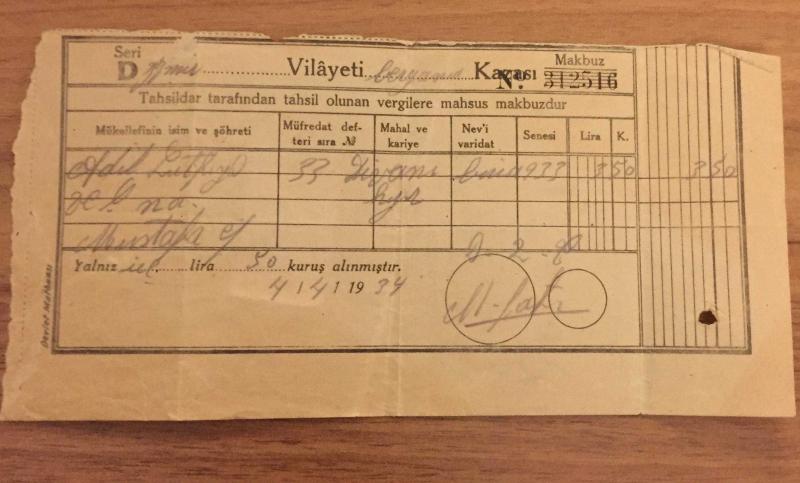 Seri
D İzmir Vilâyeti Bergama Kazası
Makbuz
No. 312516
Tahsildar tarafından tahsil olunan vergilere mahsus makbuzdur
Mükellefinin isim ve şöhreti Müfredat defteri sıra № Mahal ve kariye Nev'i varidat Senesi Lira K.
Adil 33 bina 933 3 50 3 50
Mustafa
Yalnız üç lira 50 kuruş alınmıştır.
4/4/1934
Devlet Matbaası